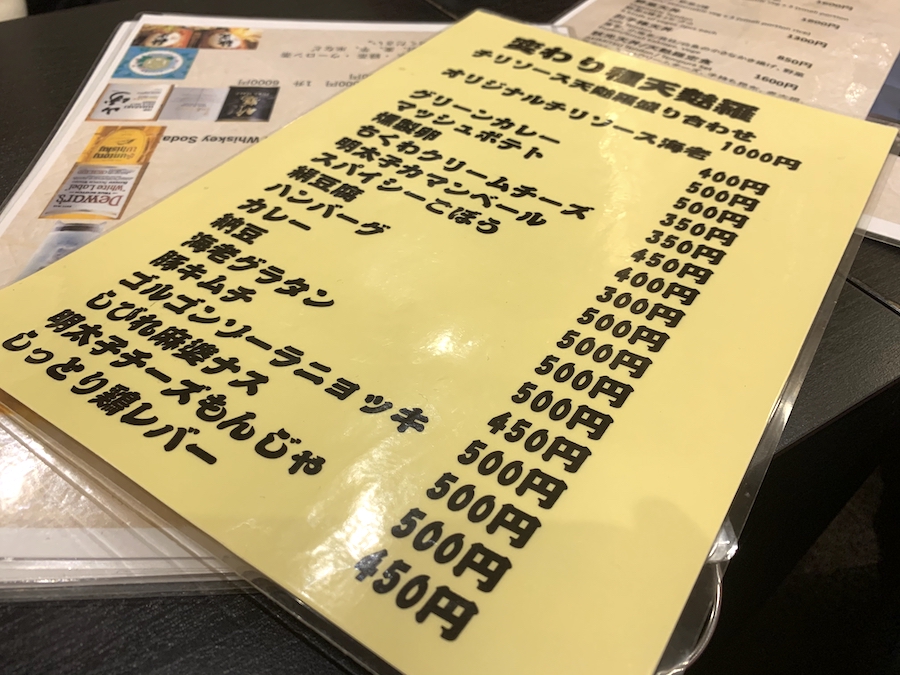 変わり種天麩羅
チリソース天麩羅盛り合わせ 1000円
オリジナルチリソース海老 400円
グリーンカレー 500円
マッシュポテト 500円
燻製卵 350円
ちくわクリームチーズ 350円
明太子カマンベール 450円
スパイシーごぼう 400円
絹豆腐 300円
ハンバーグ 500円
カレー 500円
納豆 500円
海老グラタン 500円
豚キムチ 450円
ゴルゴンゾーラニョッキ 500円
しびれ麻婆ナス 500円
明太子チーズもんじゃ 500円
しっとり鶏レバー 450円
6000円
Whiskey Soda
Dewar's
"White Label"
1300円
850円
1600円